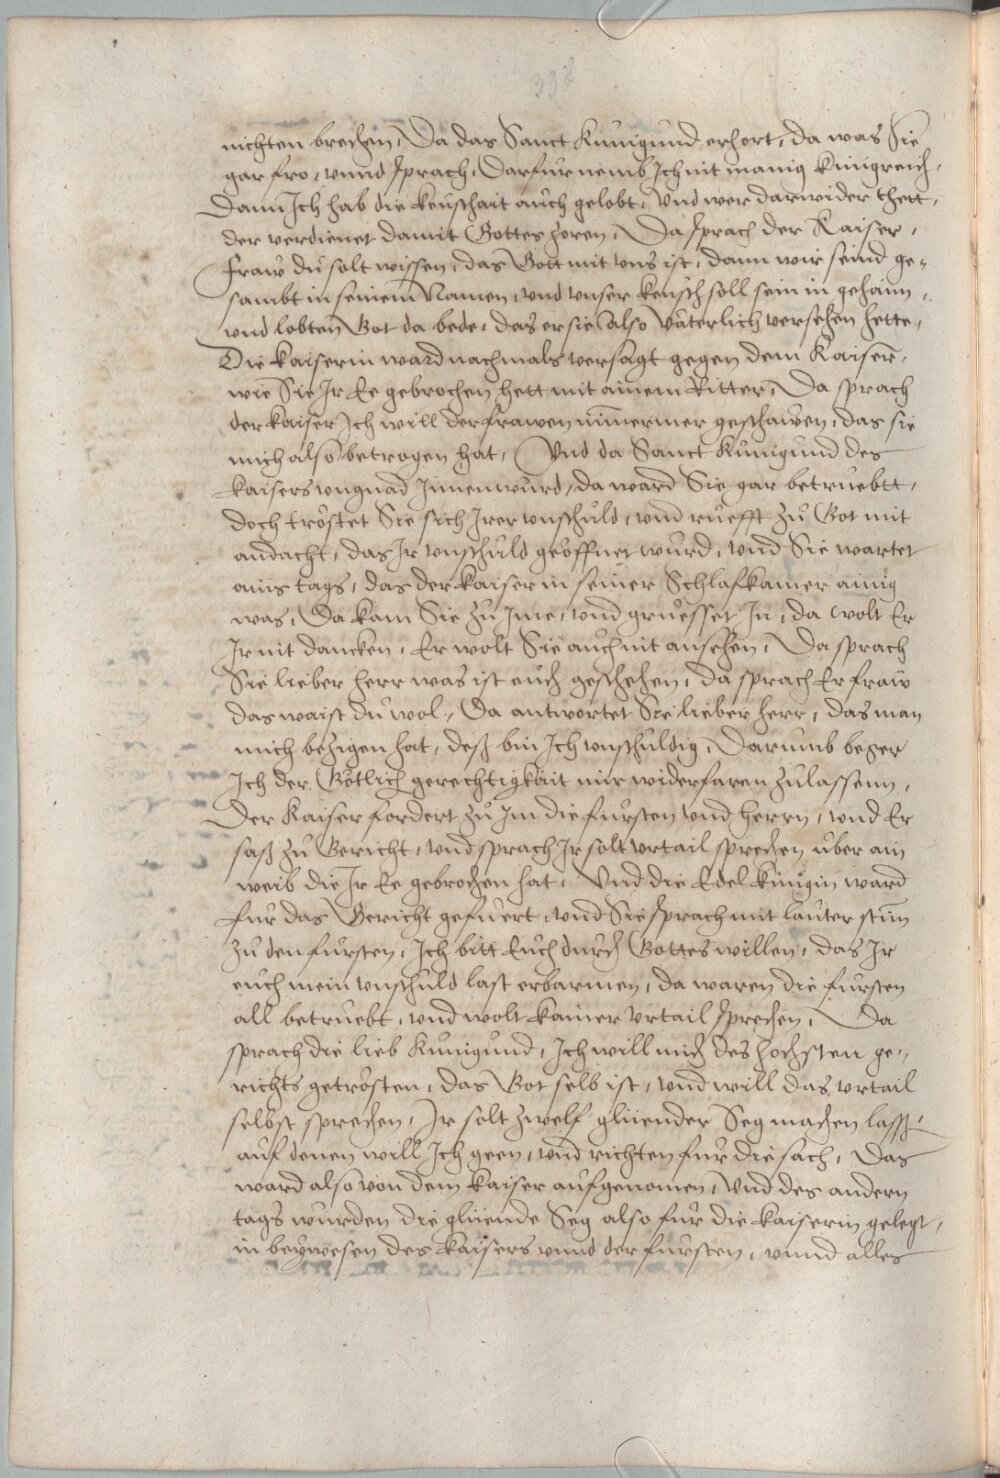 338
nichten brechen, Da das Sanct Kunigund erhort, da was Sie
gar fro, unnd sprach, Darfur nemb Ich nit manig Kunigreich,
Dann Ich hab die keuschait auch gelobt, Und wer darwider thett,
der verdienet damit Gottes zoren, Da sprach der Kaiser,
Fraw du solt wissen, das Gott mit uns ist, dann wir seind ge-
sambt in seinem Namen, und unser keusch soll sein in gehaim,
und lobten Got da bede, das er sie also väterlich versehen hette,
Die kaiserin ward nachmals versagt gegen dem Kaiser,
wie Sie Ir Ee gebrochen hett mit ainem Ritter, Da sprach
der kaiser Ich will der frawen nimermer geschawen, das sie
mich also betrogen hat, Und da Sanct Kunigund des
kaisers ungnad Innen wurd, da ward Sie gar betruebtt,
doch tröstet Sie sich Irer unschuld, und rüefft zu Got mit
andacht, das Ir unschuld geöffnet wurd, und Sie wartet
ains tags, das der kaiser in seiner Schlafkamer ainig
was, Da kam Sie zu Ime, und gruesset In, da wolt Er
Ir nit dancken, Er wolt Sie auch nit ansehen, Da sprach
Sie lieber herr was ist euch geschehen, da sprach Er fraw
das waist du wol, Da antwortet Sie lieber herr, das man
mich bezigen hat, deß bin Ich unschuldig, Darumb beger
Ich der Götlich gerechtigkait mir widerfaren zulassenn,
Der Kaiser fordert zu Im die fursten und herrn, und Er
saß zu Gericht, und sprach Ir solt urtail sprechen uber ain
weib die Ir Ee gebrochen hat, Und die Edel künigin ward
fur das Gericht gefuert, und Sie sprach mit lauter stim
zu den fursten, Ich bitt Euch durch Gottes willen, das Ir
euch mein unschuld last erbarmen, da waren die fursten
all betruebt, und wolt kainer urtail sprechen, Da
sprach die lieb Kunigund, Ich will mich des hochsten ge-
richts getrösten, das Got selb ist, und will das urtail
selbst sprechen, Ir solt zwelf glüender Seg machen lassen,
auf denen will Ich geen, und richten fur die sach, Das
ward also von dem kaiser aufgenomen, Und des andern
tags wurden die glüende Seg also fur die kaiserin gelegt,
in beywesen des kaisers unnd der fursten, unnd alles